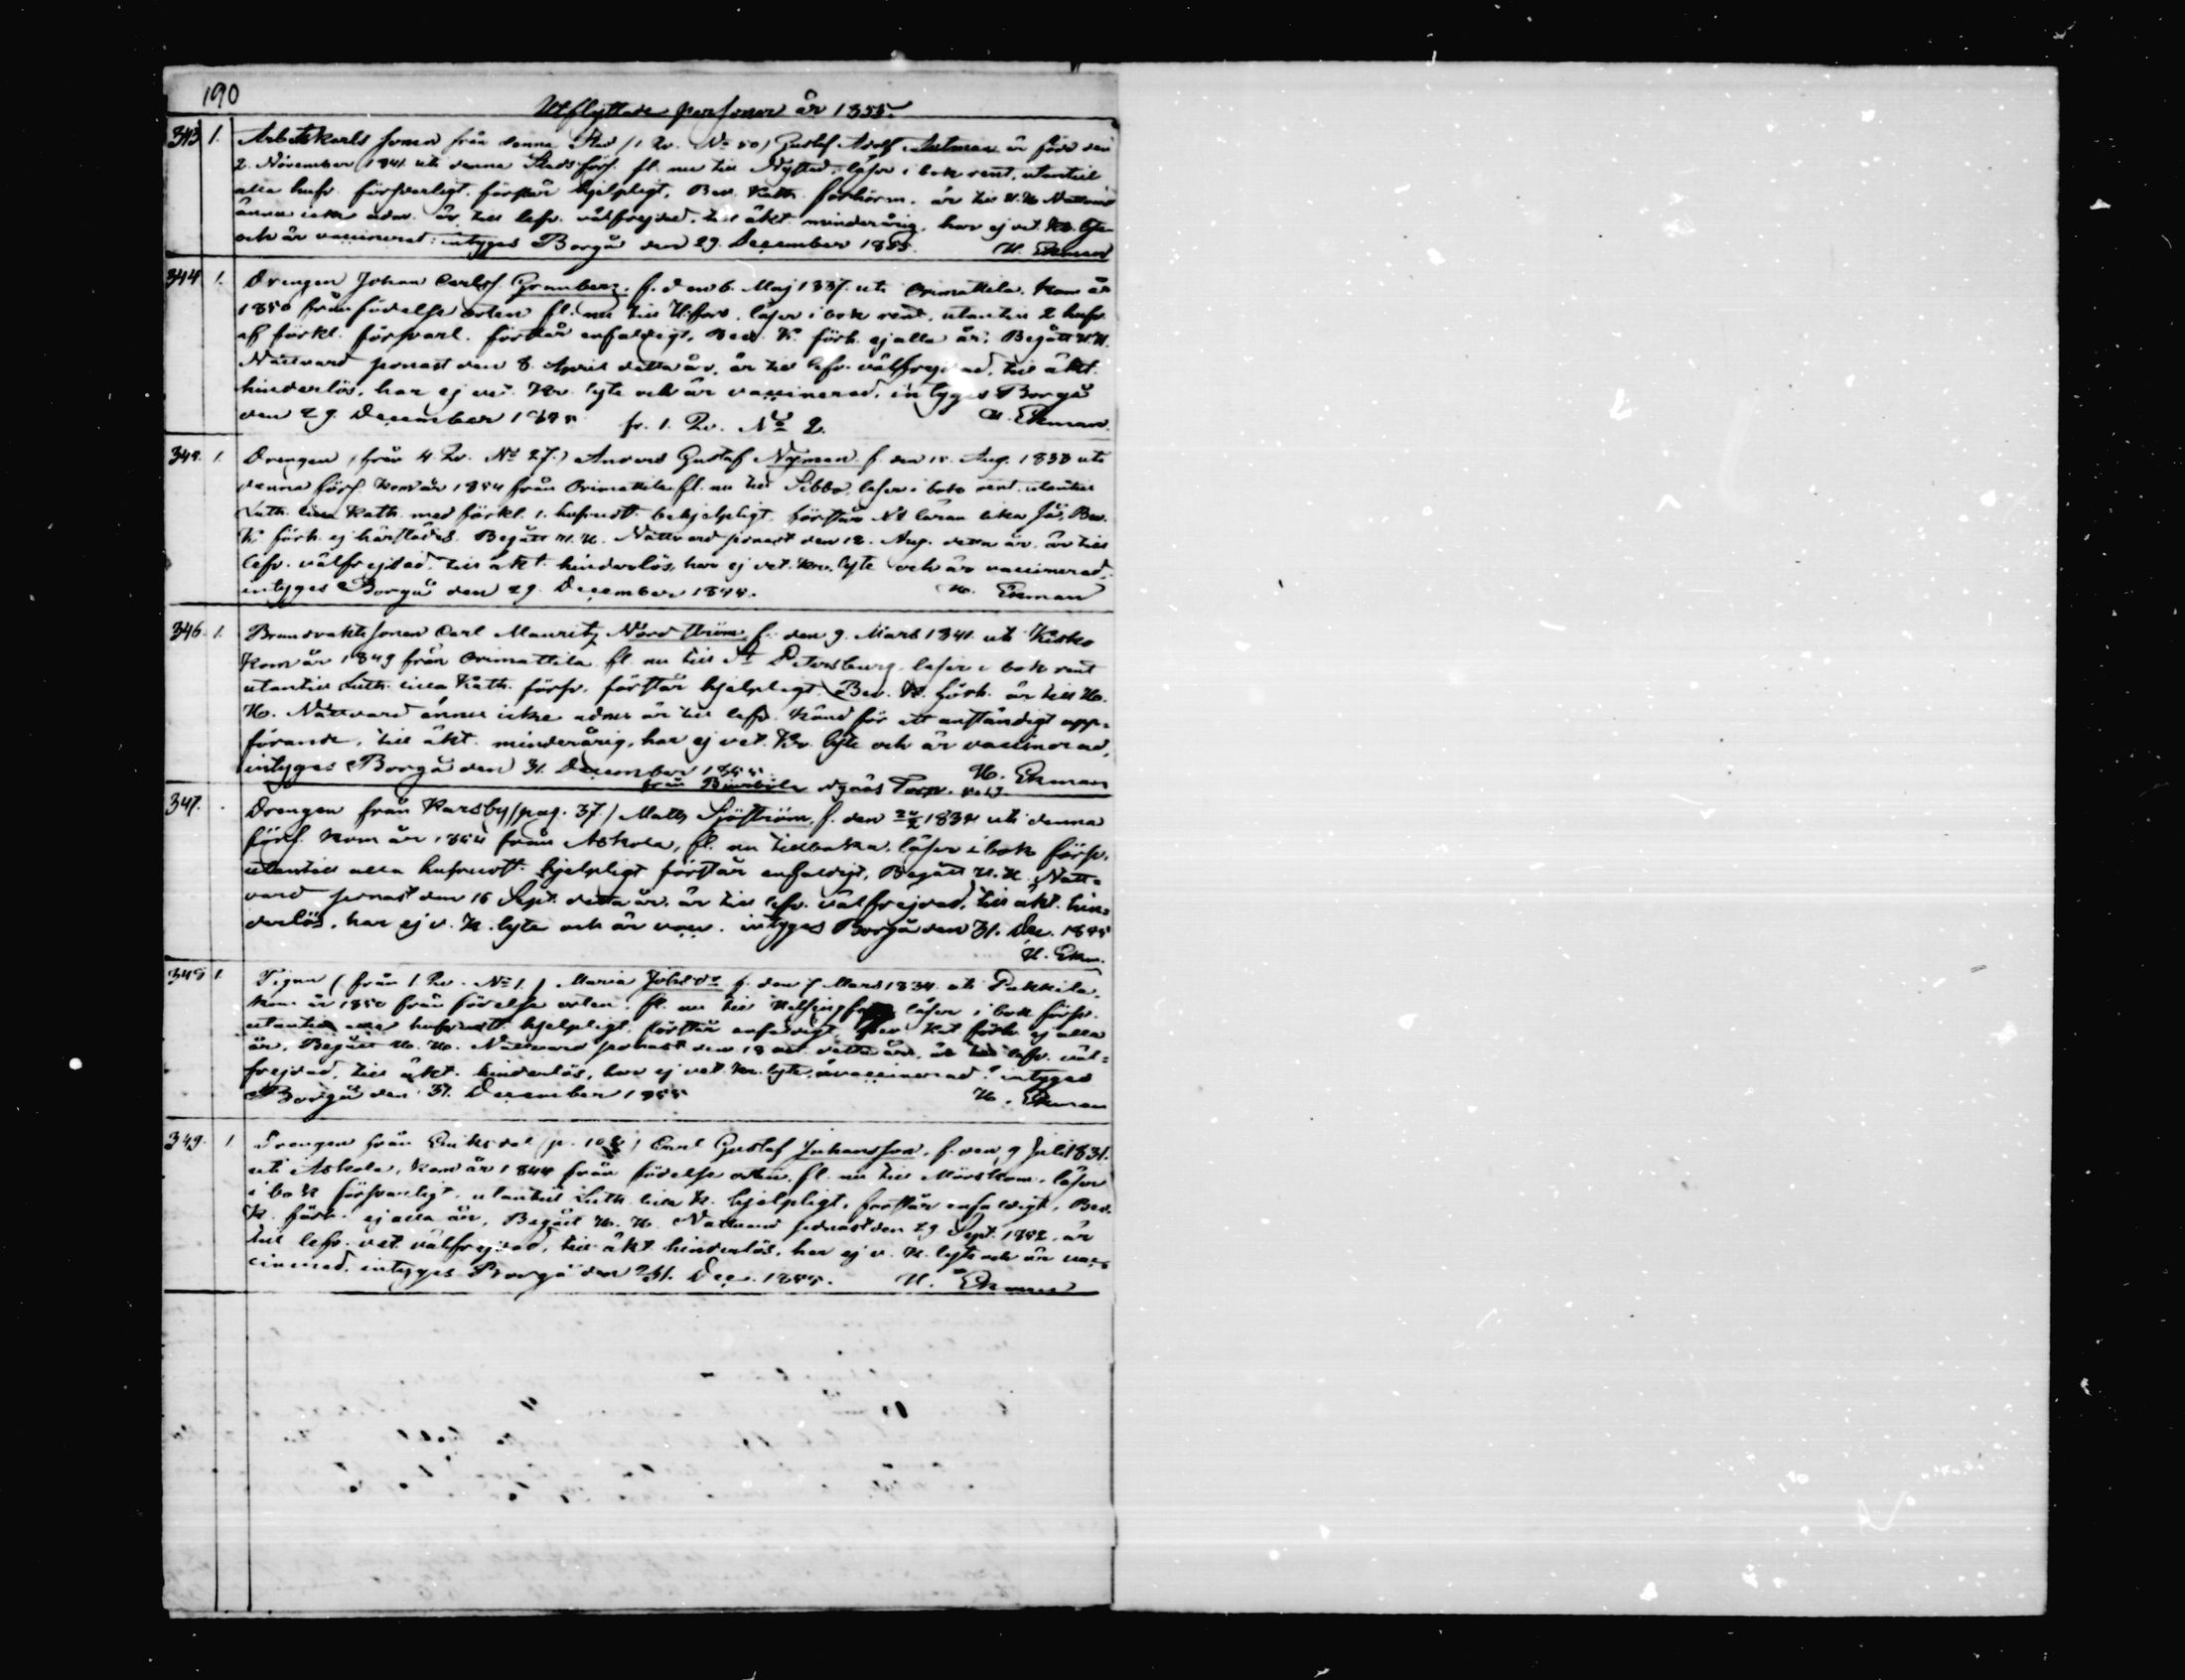 190
Utflyttade personer år 1855.
343 1. Arbetskarls sonen från denna Stad (1 Qv. No 50) Gustaf Adolf är född den
2. November 1841 uti denna Stads förs. fl. nu till Nystad, läser i bok rent, utantill
alla hufv. försvarligt, förstår hjelpligt, Bev. Kath. förhören, är till H. H. Nattvard
ännu icke adm. är till lefv. välfrejdad, till äkt. minderårig, har ej vet. Kr. lyte
och är vaccinerad: intygas Borgå den 29. December 1855. H. Ekman
344 1. Drengen Johan Carlss. Granberg, f. den 6. Maj 1837. uti Orimattila. Kom år
1850 från födelse orten fl. nu till H:fors, läser i bok rent, utantill 2 hufv.
af förkl. försvarl. förstår enfaldigt, Bev. K. förh. ej alla år, Begått H. H.
Nattvard senast den 8. April detta år, är till lefv. välfrejdad, till äkt.
hinderlös, har ej vet. Kr. lyte och är vaccinerad, intygas Borgå
den 29. December 1855 fr. 1. Qv. No 2. H. Ekman.
345. 1. Drengen (från 4. Qv. No 27.) Gustaf Nyman f. den 15. Aug. 1833 uti
denna förs. Kom år 1854 från Orimattila fl. nu till Sibbo, läser i bok rent, utantill
Luth. lilla Kath. med förkl. 1. hufvudst. behjelpligt, förstår lika så, Bev.
K. förh. ej härstädes. Begått H. H. Nattvard senast den 12. Aug. detta år. är till
lefv. välfrejdad, till äkt. hinderlös, har ej vet. Kr. lyte och är vaccinerad,
intygas Borgå den 29. December 1855. H. Ekman
346. 1. Brandvakts sonen Carl Mauritz Nordström f. den 9. Mars 1841. uti Kisko
Kom år 1849 från Orimattila fl. nu till St Petersburg, läser i bok rent
utantill Luth. lilla Kath. försv. förstår hjelpligt, Bev. K. förh. är till H.
H. Nattvard ännu icke adm. är till lefv. känd för ett anständigt upp=
förande, till äkt. minderårig, har ej vet. Kr. lyte och är vaccinerad,
intygas Borgå den 31. December 1855. H. Ekman
från Torp.
347. Drengen från Karsby (pag. 37.) Matts Sjöström, f. den 1834 uti denna
förs. Kom år 1854 från Askola, fl. nu tillbaka, läser i bok försv.
utantill alla hufvudst. hjelpligt förstår enfaldigt, Begått H. H. Natt=
vard senast den 16 Sept. detta år, är till lefv. välfrejdad, till äkt. hin=
derlös, har ej v. K. lyte och är vacc. intygas Borgå den 31. Dec. 1855
H. Ekm.
348 1. Pigan (från 1. Qv. No 1.) Maria Johsdr f. den 7 Mars 1834. uti Pukkila,
Kom år 1850 från födelse orten, fl. nu till Helsingfors läser i bok försv.
utantill hufvudst. hjelpligt, förstår enfaldigt, Bev. Kat. förh. ej alla
år, Begått H. H. Nattvard senast den 18 detta år, är till lefv. väl=
frejdad, till äkt. hinderlös, har ej vet. Kr. lyte, intygas
Borgå den 31. December 1855 H. Ekman
349. 1. Drengen från (p. 108) Carl Gustaf Johansson, f. den 9 Juli 1831.
uti Askola, Kom år 1844 från födelse orten, fl. nu till Mörskom, läser
i bok försvarligt, utantill Luth. lilla K. hjelpligt, förstår enfaldigt, Bev.
K. förh. ej alla år, Begått H. H. Nattvard senast den 29 Sept. 1852, är
till lefv. vet. välfrejdad, till äkt. hinderlös, har ej v. K. lyte och är vac=
cinerad, intygas Borgå den 31. Dec. 1855. H. Ekman